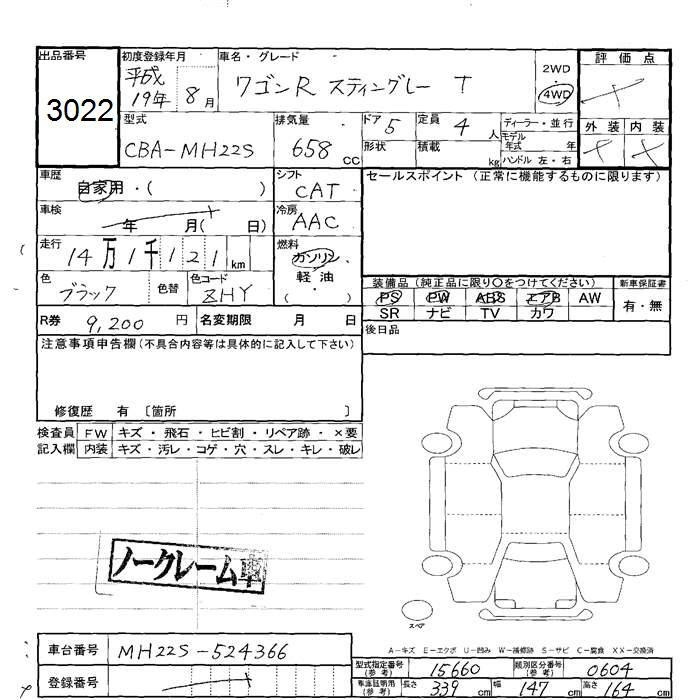 出品番号 初度登録年月 車名・グレード 2WD 評価点
3022 平成19年 8月 ワゴンR スティングレー T 4WD
型式 排気量 ドア 5 定員 4人 ディーラー・並行 外装 内装
CBA-MH22S 658 CC 形状 積載 kg モデル年式 年
ハンドル 左・右
車歴 シフト セールスポイント (正常に機能するものに限ります)
自家用・( ) CAT
車検 冷房
年 月( 日) AAC
走行 燃料
14万1千121km ガソリン
色 色コード 軽油
ブラック 色替 ZHY ( )
装備品 (純正品に限り○をつけてください) 新車保証書
PS PW ABS エアB AW 有・無
SR ナビ TV カワ
R券 9,200円 名変期限 月 日
後日品
注意事項申告欄 (不具合内容等は具体的に記入して下さい)
修復歴 有 〔箇所 〕
検査員 FW キズ・飛石・ヒビ割・リペア跡・×要
記入欄 内装 キズ・汚レ・コゲ・穴・スレ・キレ・破レ
ノークレーム車
スペア
A-キズ E-エクボ U-凹み W-補修跡 S-サビ C-腐食 XX-交換済
車台番号 MH22S-524366
型式指定番号(参考) 15660 類別区分番号(参考) 0604
登録番号
車庫証明用(参考) 長さ 339cm 幅 147cm 高さ 164cm